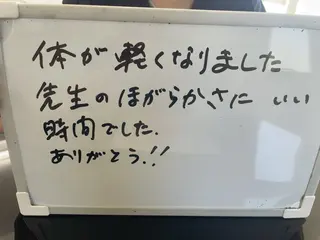 体が軽くなりました
先生のほがらかさに いい
時間でした.
ありがとう!!